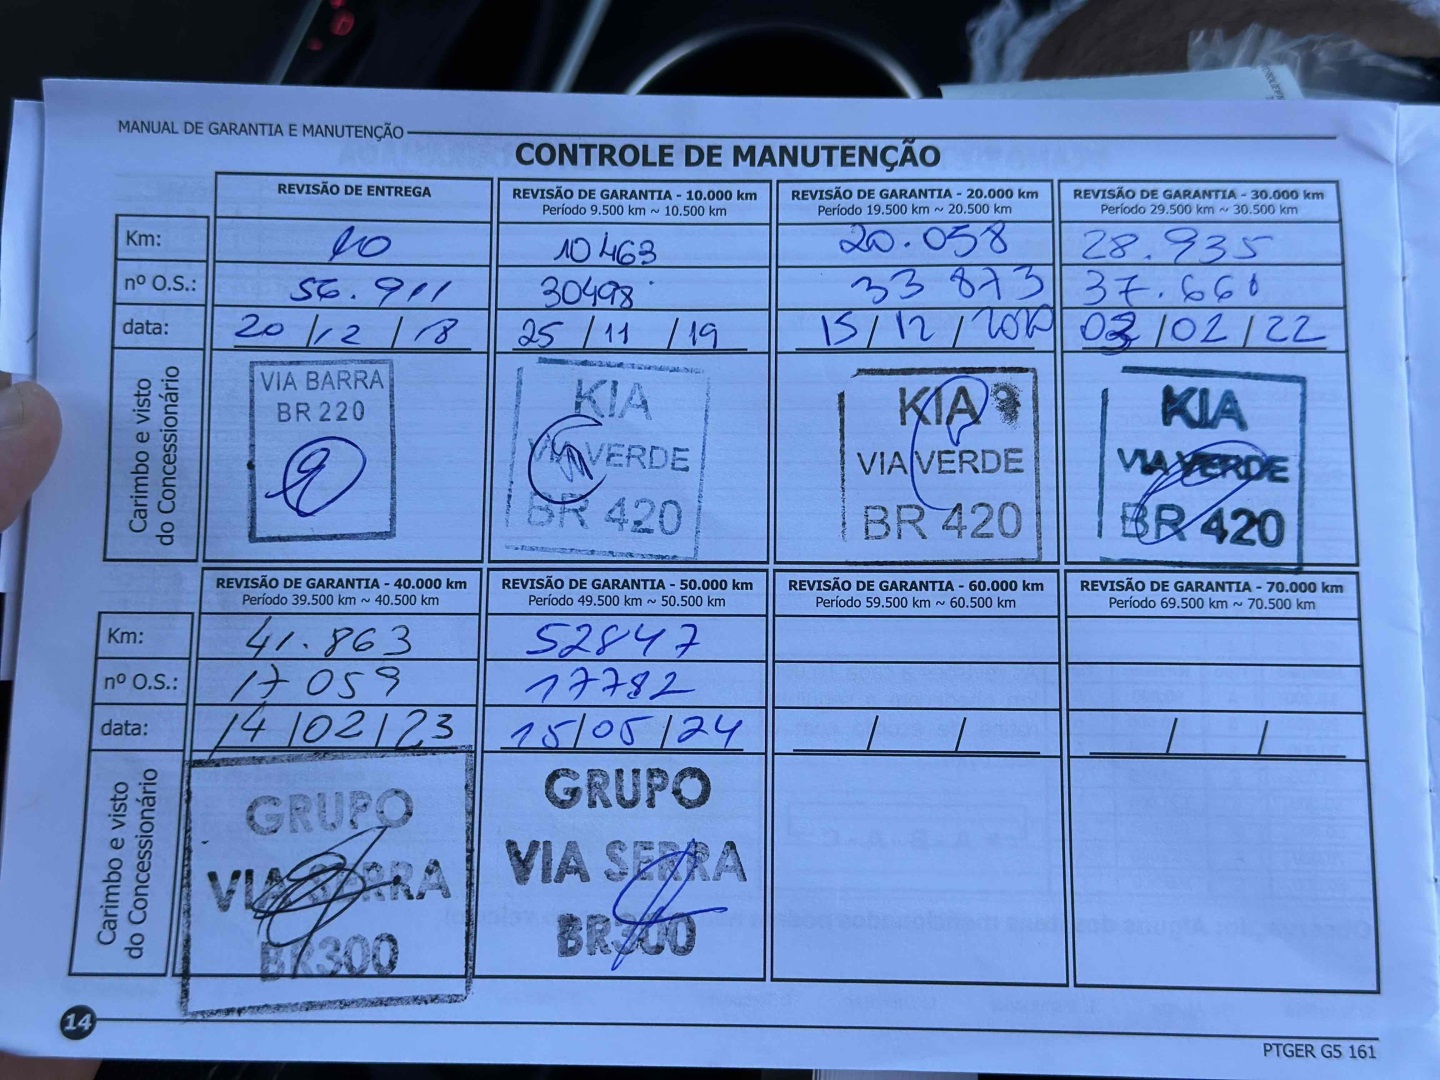 MANUAL DE GARANTIA E MANUTENÇÃO
CONTROLE DE MANUTENÇÃO
REVISÃO DE ENTREGA
REVISÃO DE GARANTIA - 10.000 km
Período 9.500 km ~ 10.500 km
REVISÃO DE GARANTIA - 20.000 km
Período 19.500 km ~ 20.500 km
REVISÃO DE GARANTIA - 30.000 km
Período 29.500 km ~ 30.500 km
Km: 10 10463 20.058 28.935
nº O.S.: 56.911 30498 33873 37.661
data: 20/12/18 25/11/19 15/12/2020 03/02/22
Carimbo e visto
do Concessionário
VIA BARRA
BR 220
KIA
VIA VERDE
BR 420
KIA
VIA VERDE
BR 420
KIA
VIA VERDE
BR 420
REVISÃO DE GARANTIA - 40.000 km
Período 39.500 km ~ 40.500 km
REVISÃO DE GARANTIA - 50.000 km
Período 49.500 km ~ 50.500 km
REVISÃO DE GARANTIA - 60.000 km
Período 59.500 km ~ 60.500 km
REVISÃO DE GARANTIA - 70.000 km
Período 69.500 km ~ 70.500 km
Km: 41.863 52847
nº O.S.: 17059 17782
data: 14/02/23 15/05/24 / / / /
Carimbo e visto
do Concessionário
GRUPO
VIA SERRA
BR300
GRUPO
VIA SERRA
BR300
14
PTGER G5 161